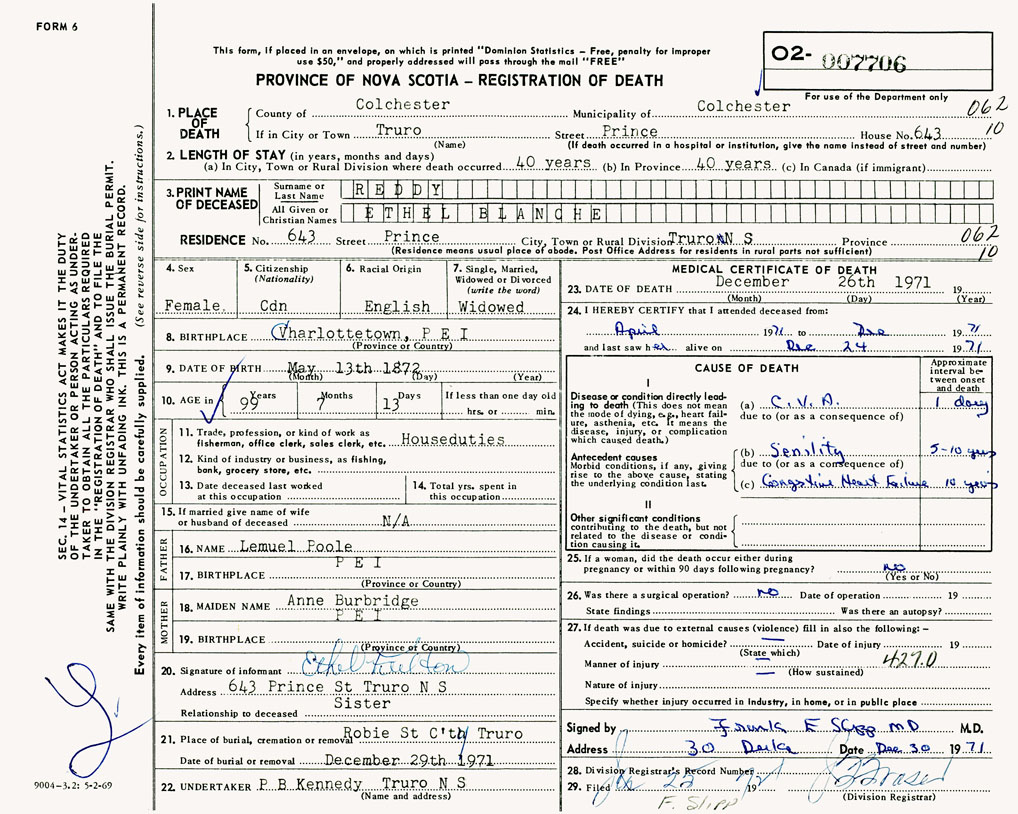 FORM 6
This form, if placed in an envelope, on which is printed "Dominion Statistics – Free, penalty for improper
use $50," and properly addressed will pass through the mail "FREE"
PROVINCE OF NOVA SCOTIA – REGISTRATION OF DEATH
02- 007706
For use of the Department only
1. PLACE OF DEATH
County of Colchester Municipality of Colchester 062
If in City or Town Truro Street Prince House No. 643 10
(Name) (If death occurred in a hospital or institution, give the name instead of street and number)
2. LENGTH OF STAY (in years, months and days)
(a) In City, Town or Rural Division where death occurred 40 years (b) In Province 40 years (c) In Canada (if immigrant)
3. PRINT NAME OF DECEASED
Surname or Last Name REDDY
All Given or Christian Names ETHEL BLANCHE
RESIDENCE No. 643 Street Prince City, Town or Rural Division Truro N S Province 062
(Residence means usual place of abode. Post Office Address for residents in rural parts not sufficient) 10
4. Sex
Female
5. Citizenship (Nationality)
Cdn
6. Racial Origin
English
7. Single, Married, Widowed or Divorced (write the word)
Widowed
8. BIRTHPLACE Charlottetown, P E I
(Province or Country)
9. DATE OF BIRTH May 13th 1872
(Month) (Day) (Year)
10. AGE in 99 Years 7 Months 13 Days If less than one day old hrs. or min.
OCCUPATION
11. Trade, profession, or kind of work as fisherman, office clerk, sales clerk, etc. Houseduties
12. Kind of industry or business, as fishing, bank, grocery store, etc.
13. Date deceased last worked at this occupation
14. Total yrs. spent in this occupation
15. If married give name of wife or husband of deceased N/A
FATHER
16. NAME Lemuel Poole
17. BIRTHPLACE P E I
(Province or Country)
MOTHER
18. MAIDEN NAME Anne Burbridge
19. BIRTHPLACE P E I
(Province or Country)
20. Signature of informant Ethel Fulton
Address 643 Prince St Truro N S
Relationship to deceased Sister
21. Place of burial, cremation or removal Robie St C'ty Truro
Date of burial or removal December 29th 1971
22. UNDERTAKER P B Kennedy Truro N S
(Name and address)
MEDICAL CERTIFICATE OF DEATH
23. DATE OF DEATH December 26th 1971 19
(Month) (Day) (Year)
24. I HEREBY CERTIFY that I attended deceased from:
April 1971 to Dec 1971
and last saw her alive on Dec 24 1971
CAUSE OF DEATH
Approximate interval between onset and death
I
Disease or condition directly leading to death (This does not mean the mode of dying, e.g., heart failure, asthenia, etc. It means the disease, injury, or complication which caused death.)
(a) C.V.A. 1 day
due to (or as a consequence of)
Antecedent causes
Morbid conditions, if any, giving rise to the above cause, stating the underlying condition last.
(b) Senility 5-10 years
due to (or as a consequence of)
(c) Congestive Heart Failure 10 years
II
Other significant conditions contributing to the death, but not related to the disease or condition causing it.
25. If a woman, did the death occur either during
pregnancy or within 90 days following pregnancy? NO
(Yes or No)
26. Was there a surgical operation? NO Date of operation 19
State findings Was there an autopsy?
27. If death was due to external causes (violence) fill in also the following: –
Accident, suicide or homicide? Date of injury 19
(State which)
Manner of injury 427.0
(How sustained)
Nature of injury
Specify whether injury occurred in industry, in home, or in public place
Signed by Frank E Slipp MD M.D.
Address 30 Date Dec 30 1971
28. Division Registrar's Record Number
29. Filed 19
(Division Registrar)
F. Slipp
SEC. 14 – VITAL STATISTICS ACT MAKES IT THE DUTY
OF THE UNDERTAKER OR PERSON ACTING AS UNDER-
TAKER TO OBTAIN ALL THE PARTICULARS REQUIRED
IN THE "REGISTRATION OF DEATH" AND TO FILE THE
SAME WITH THE DIVISION REGISTRAR WHO SHALL ISSUE THE BURIAL PERMIT.
WRITE PLAINLY WITH UNFADING INK. THIS IS A PERMANENT RECORD.
Every item of information should be carefully supplied. (See reverse side for instructions.)
9004-3.2: 5-2-69